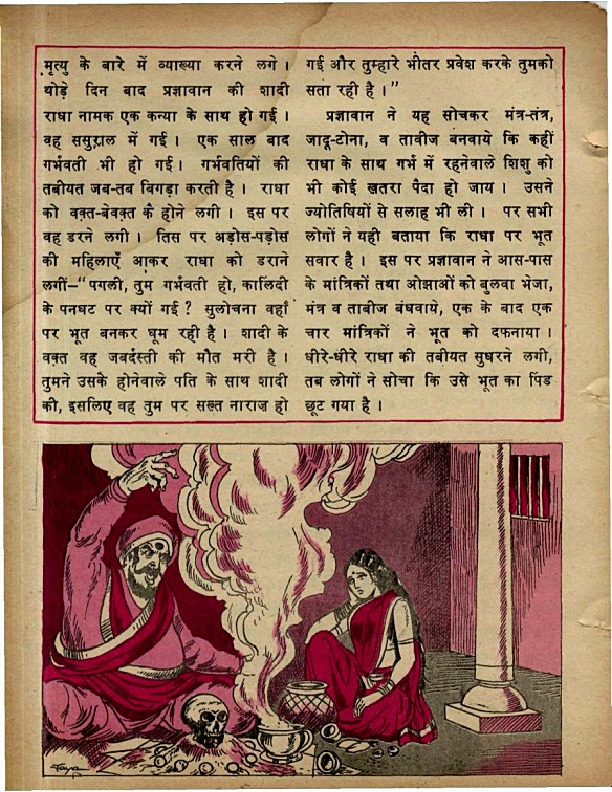 मृत्यु के बारे में व्याख्या करने लगे।
थोड़े दिन बाद प्रज्ञावान की शादी
राधा नामक एक कन्या के साथ हो गई।
वह ससुराल में गई। एक साल बाद
गर्भवती भी हो गई। गर्भवतियों की
तबीयत जब-तब बिगड़ा करती है। राधा
को वक़्त-बेवक़्त कै होने लगी। इस पर
वह डरने लगी। तिस पर अड़ोस-पड़ोस
की महिलाएँ आकर राधा को डराने
लगीं—"पगली, तुम गर्भवती हो, कालिंदी
के पनघट पर क्यों गई? सुलोचना वहाँ
पर भूत बनकर घूम रही है। शादी के
वक़्त वह जबर्दस्ती की मौत मरी है।
तुमने उसके होनेवाले पति के साथ शादी
की, इसलिए वह तुम पर सख्त नाराज हो
गई और तुम्हारे भीतर प्रवेश करके तुमको
सता रही है।"
प्रज्ञावान ने यह सोचकर मंत्र-तंत्र,
जादू-टोना, व तावीज बनवाये कि कहीं
राधा के साथ गर्भ में रहनेवाले शिशु को
भी कोई खतरा पैदा हो जाय। उसने
ज्योतिषियों से सलाह भी ली। पर सभी
लोगों ने यही बताया कि राधा पर भूत
सवार है। इस पर प्रज्ञावान ने आस-पास
के मांत्रिकों तथा ओझाओं को बुलवा भेजा,
मंत्र व ताबीज बंधवाये, एक के बाद एक
चार मांत्रिकों ने भूत को दफनाया।
धीरे-धीरे राधा की तबीयत सुधरने लगी,
तब लोगों ने सोचा कि उसे भूत का पिंड
छूट गया है।